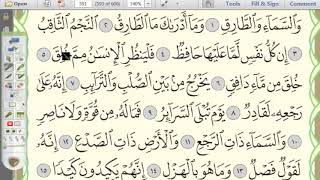 Open
591
(593 of 606)
Tools
Fill & Sign
Comment
وَالسَّمَاءِ وَالطَّارِقِ ١ وَمَا أَدْرَاكَ مَا الطَّارِقُ ٢ النَّجْمُ الثَّاقِبُ
٣ إِن كُلُّ نَفْسٍ لَّمَّا عَلَيْهَا حَافِظٌ ٤ فَلْيَنظُرِ الْإِنسَانُ مِمَّ خُلِقَ ٥
خُلِقَ مِن مَّاءٍ دَافِقٍ ٦ يَخْرُجُ مِن بَيْنِ الصُّلْبِ وَالتَّرَائِبِ ٧ إِنَّهُ عَلَىٰ
رَجْعِهِ لَقَادِرٌ ٨ يَوْمَ تُبْلَى السَّرَائِرُ ٩ فَمَا لَهُ مِن قُوَّةٍ وَلَا نَاصِرٍ
١٠ وَالسَّمَاءِ ذَاتِ الرَّجْعِ ١١ وَالْأَرْضِ ذَاتِ الصَّدْعِ ١٢ إِنَّهُ
لَقَوْلٌ فَصْلٌ ١٣ وَمَا هُوَ بِالْهَزْلِ ١٤ إِنَّهُمْ يَكِيدُونَ كَيْدًا ١٥